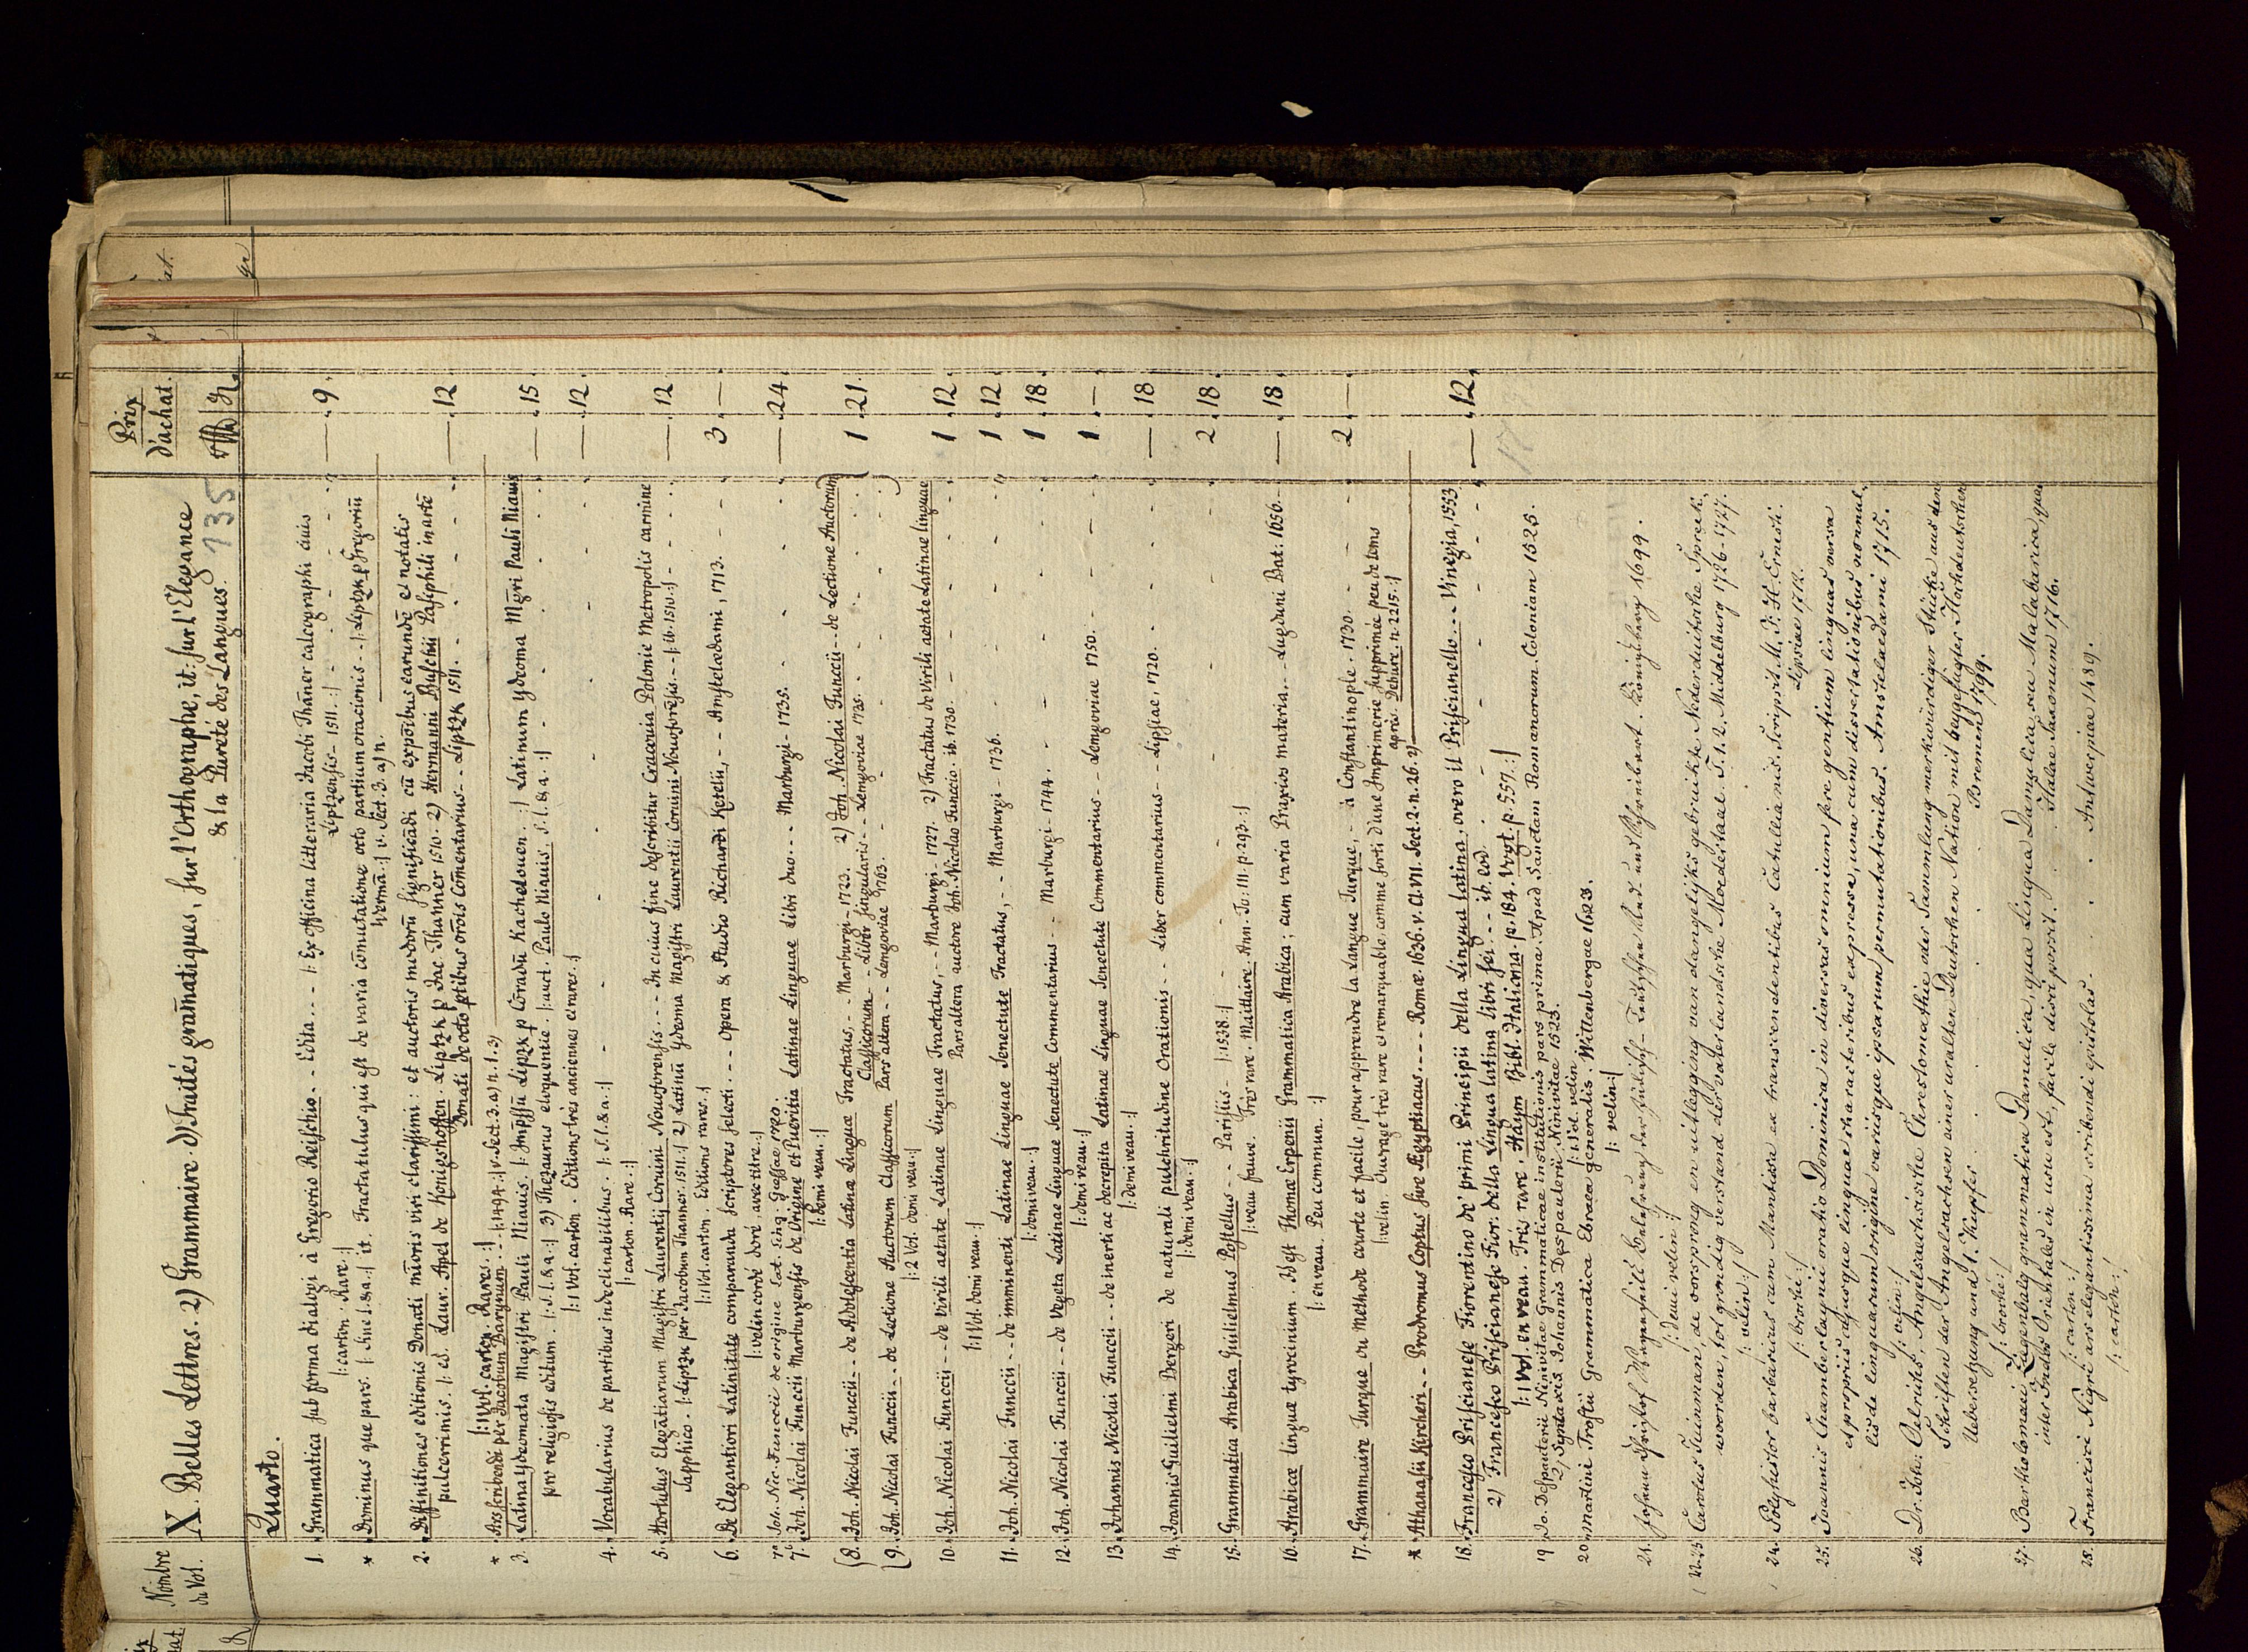 Nombre de Vol.
X. Belles Lettres. 2) Grammaire. d) Traités gram̄atiques, sur l'Orthographe, it: sur l'Elegance
& la Pureté des Langues. 135
Prix d'achat.
Quarto.
1. Grammatica sub forma dialogi à Gregorio Reischio - - Edita - - - |: Ex officina litteraria Jacobi Than̄er calcographi civis — . 9.
|: carton. Rare :| Liptzensis - 1511. :|
* Dominus que pars. |: sine l. & a. :| it. Tractatulus qui est de varia com̄utatione octo partium oracionis - - |: Liptzk p Gregoriū
Wermā. :| v. Sect. 3. a) n.
2. Diffinitiones editionis Donati mīoris viri clarissimi : et auctoris modorū significādi cū expōibus earundē et notatis
pulcerrimis. |: ed. Laur. Apel de Konigshoffen. Liptzk p Jac. Thanner 1510. 2) Hermanni Buschii Pasiphili in artē — . 12
Donati de octo ptibus orōis Com̄entarius - - Liptzk 1511.
|: 1 Vol. carton. Rares. :|
* Ars scribendi per Jacobum Barynum - - |: 1494. :| v. Sect. 3. a) n. 1. 3)
3. Latina ydeomata Magistri Pauli Niauis. |: Imp̄ssū Lipzk p Cōradū Kachelouen. :| Latinum ydeoma Mgr̄i Pauli Niauis — . 15
pro religiosis editum. |: S. l. & a. :| 3) Thezaurus eloquentie. |: auct. Paulo Niauis. S. l. & a. :|
|: 1 Vol. carton. Editions très anciennes et rares. :|
4. Vocabularius de partibus indeclinabilibus. |: S. l. & a. :| — . 12
|: carton. Rare :|
5. Hortulus Elegātiarum Magistri Laurentij Coruini Nouoforensis - - - In cuius fine describitur Cracouia Polonie Metropolis carmine — . 12
Sapphico - |: Liptzk per Jacobum Thanner. 1511. :| 2) Latinū Ydeoma Magistri Laurentii Coruini Nouoforēsis. - - |: ib. 1510. :|
|: 1 Vol. carton. Editions rares. :|
6. De Elegantiori Latinitate comparanda scriptores selecti. - - Opera & studio Richardi Ketelii, - - Amstelædami, 1713. 3 —
|: velin cordé doré, avec titre. :|
7a Joh. Nic. Funccii de origine Lat. Ling. Giessae 1720.
7b Joh. Nicolai Funccii Marburgensis de Origine et Pueritia Latinae Linguae Libri duo - - - Marburgi - 1735. — . 24
|: demi veau. :|
8. Joh. Nicolai Funccii - - de Adolescentia Latinæ Linguæ Tractatus. - - Marburgi - 1723. 2) Joh. Nicolai Funccii - - de Lectione Auctorum 1 . 21.
Classicorum - - Liber singularis - - Lemgoviae 1735.
9. Joh. Nicolai Funccii - - de Lectione Auctorum Classicorum Pars altera - - Lemgoviae 1763.
|: 2 Vol. demi veau :|
10. Joh. Nicolai Funccii - - de Virili aetate Latinae Linguae Tractatus, - - Marburgi. 1727. 2) Tractatus de Virili aetate Latinae linguae 1 . 12
Pars altera auctore Joh. Nicolao Funccio. ib. 1730.
|: 1 Vol. demi veau. :|
11. Joh. Nicolai Funccii - - de imminenti Latinae Linguae Senectute Tractatus, - - Marburgi - 1736. 1 . 12
|: demi veau. :|
12. Joh. Nicolai Funccii - - de Vegeta Latinae Linguae Senectute Commentarius - - Marburgi - 1744. 1 . 18.
|: demi veau. :|
13. Johannis Nicolai Funccii - - de inerti ac decrepita Latinae Linguae Senectute Commentarius - - Lemgoviae 1750. 1 . —
|: demi veau. :|
14. Joannis Guilielmi Bergeri de naturali pulchritudine Orationis - - Liber commentarius - - Lipsiae, 1720. — . 18
|: demi veau. :|
15. Grammatica Arabica Guilielmus Postellus - - Parisiis - |: 1538. :| 2 . 18.
|: veau fauve. Très rare. Maittaire. Ann. To. III. p. 293. :|
16. Arabicæ linguæ tyrocinium. Id est Thomæ Erpenii Grammatica Arabica ; cum varia Praxios materia. - - Lugduni Bat: 1656. — . 18
|: en veau. Peu commun. :|
17. Grammaire Turque ou Methode courte et facile, pour apprendre la Langue Turque, - à Constantinople. 1730. 2 —
|: velin. Ouvrage très rare et remarquable, comme sorti d'une Imprimerie supprimée peu de tems
après. Debure. n. 2215. :|
* Athanasii Kircheri - - Prodromus Coptus sive Ægyptiacus - - - - Romæ. 1636. v. Cl. VII. Sect. 2. n. 26. 2)
18. Francesco Priscianese Fiorentino de' primi Principii della Lingua latina, overo il Priscianello. - - Vinegia, 1553 — . 12.
2) Francesco Priscianese Fior. della Lingua latina libri sei. - - ib. eod.
|: 1 Vol. en veau. Très rare. Haym Bibl. Italiana. p. 184. Vogt. p. 557. :|
19 Jo. Despauterii Ninivitae Grammaticae institutionis pars prima. Apud Sanctam Romanorum Coloniam 1525.
2) Syntaxis Johannis Despauterii Ninivitae 1523.
|: 1 Vol. velin
20. Martini Trostii Grammatica Ebraea generalis. Wittenbergae 1623.
|: velin :|
21. Johann Christof Wagenseils Belehrung der Jüdisch-Teutschen Red- und Schreibart. Königsberg 1699.
|: demi velin :|
22.23. Carolus Tuinman, de oorsprong en uitlegging van dangelijks gebruikte Nederduitsche Spreek-
woorden, tot grondig verstand der vaderlandsche Moedertaal. T. 1. 2. Middelburg 1726-1727.
|: velin :|
24. Polyhistor barbaricus cum Mantissa ex transcendentibus Catullianis. Scripsit M. J. H. Ernesti.
|: broché :| Lipsiae 1712.
25. Joannis Chamberlaynii oratio Dominica in diversas omnium fere gentium linguas versa
et propriis cujusque linguae characteribus expressa, una cum dissertationibus nonnul-
lis de linguarum origine variisque ipsarum permutationibus. Amstelaedami 1715.
|: velin :|
26. Dr. Joh: Oelrichs, Angelsächsische Chrestomathie oder Sammlung merkwürdiger Stücke aus den
Schriften der Angelsachsen einer uralten Deutschen Nation mit beygefügter Hochdeutschen
Uebersetzung Bremen 1799.
|: broché :|
27. Bartholomaei Ziegenbalg grammatica Damulica, qua Lingua Damulica, seu Malabarica, quae
inter Indos Orientales in usu est, facile disci possit. Halae Saxonum 1716.
|: carton :|
28. Francisci Nigri ars elegantissima scribendi epistolas. Antwerpiae 1489.
|: carton :|